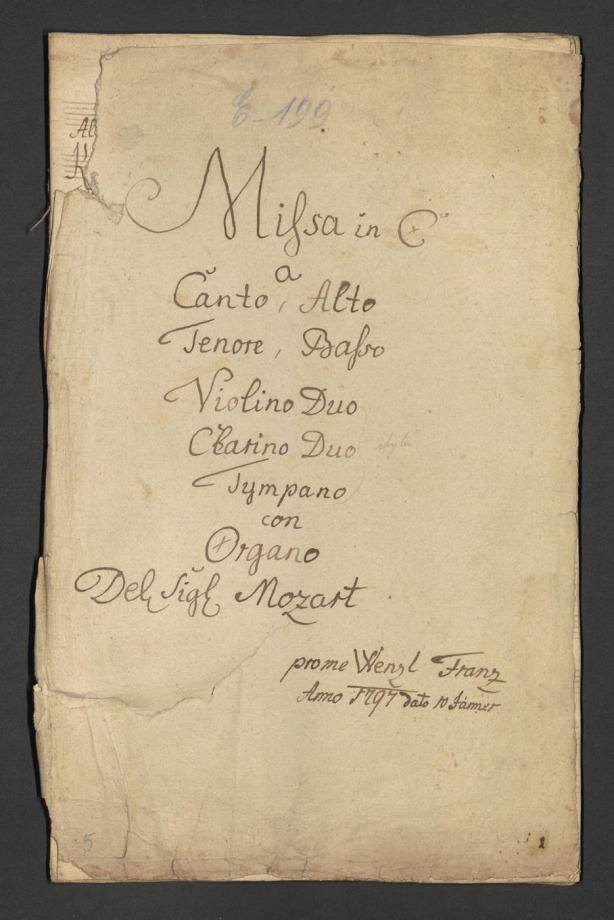 E-199
Al
K
Missa in C
a
Canto, Alto
Tenore, Basso
Violino Duo
Clarino Duo
Tympano
con
Organo
Del Sigl Mozart
pro me Wenzl Franz
Anno 1797 dato 10 Jänner
5
1